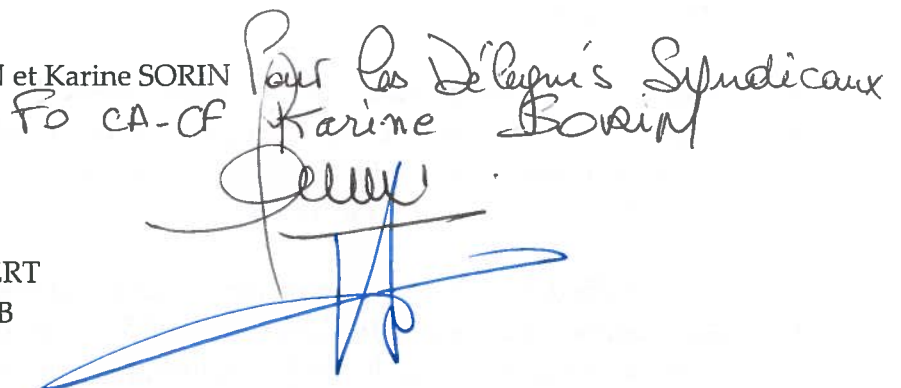 et Karine SORIN Pour les Délégués Syndicaux
FO CA-CF Karine SORIN
ERT
B